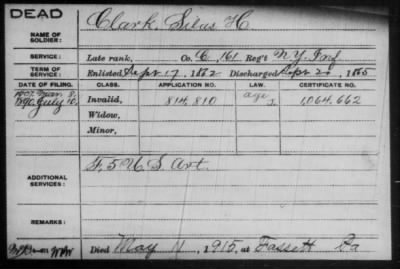 DEAD
Clark, Silas H
NAME OF
SOLDIER:
SERVICE:
Late rank, Co. C, 161 Reg't N.Y. Inf
TERM OF
SERVICE:
Enlisted Sept 17, 1862 Discharged Sept 20, 1865
DATE OF FILING. CLASS. APPLICATION NO. LAW. CERTIFICATE NO.
1907 Mar 8
1890 July 10, Invalid, 814,810 age 1,064,662
Widow,
Minor,
F 5 U S. Art.
ADDITIONAL
SERVICES:
REMARKS:
Died May 11, 1915, at Fassett Pa